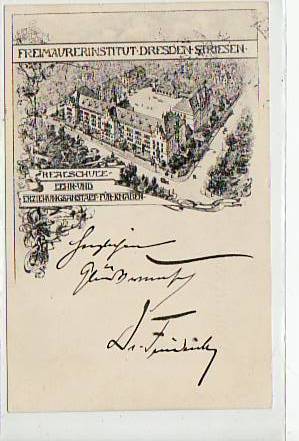 FREIMAURERINSTITUT · DRESDEN · STRIESEN ·
REALSCHULE -
LEHR- UND
ERZIEHUNGSANSTALT FÜR KNABEN
Herzlichen
Glückwunsch
Dr. Friedrich